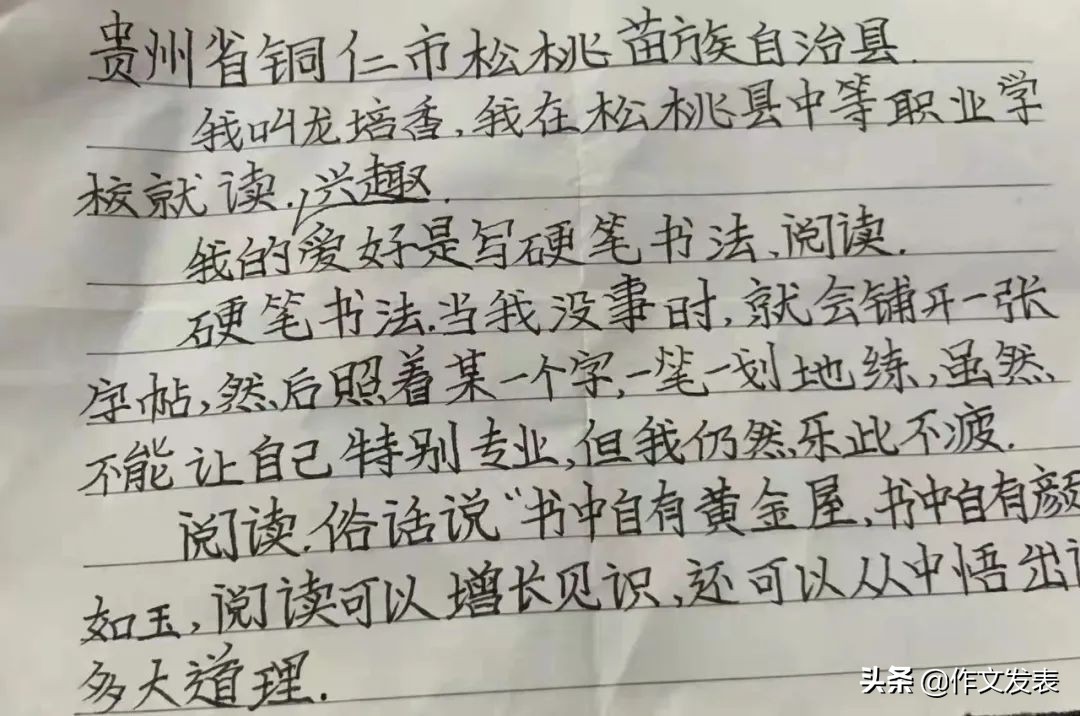 贵州省铜仁市松桃苗族自治县.
我叫龙培香,我在松桃县中等职业学
校就读.,兴趣.
我的爱好是写硬笔书法、阅读.
硬笔书法.当我没事时,就会铺开一张
字帖,然后照着某一个字,一笔一划地练,虽然
不能让自己特别专业,但我仍然乐此不疲.
阅读.俗话说“书中自有黄金屋,书中自有颜
如玉,阅读可以增长见识,还可以从中悟出
多大道理.
头条 @作文发表